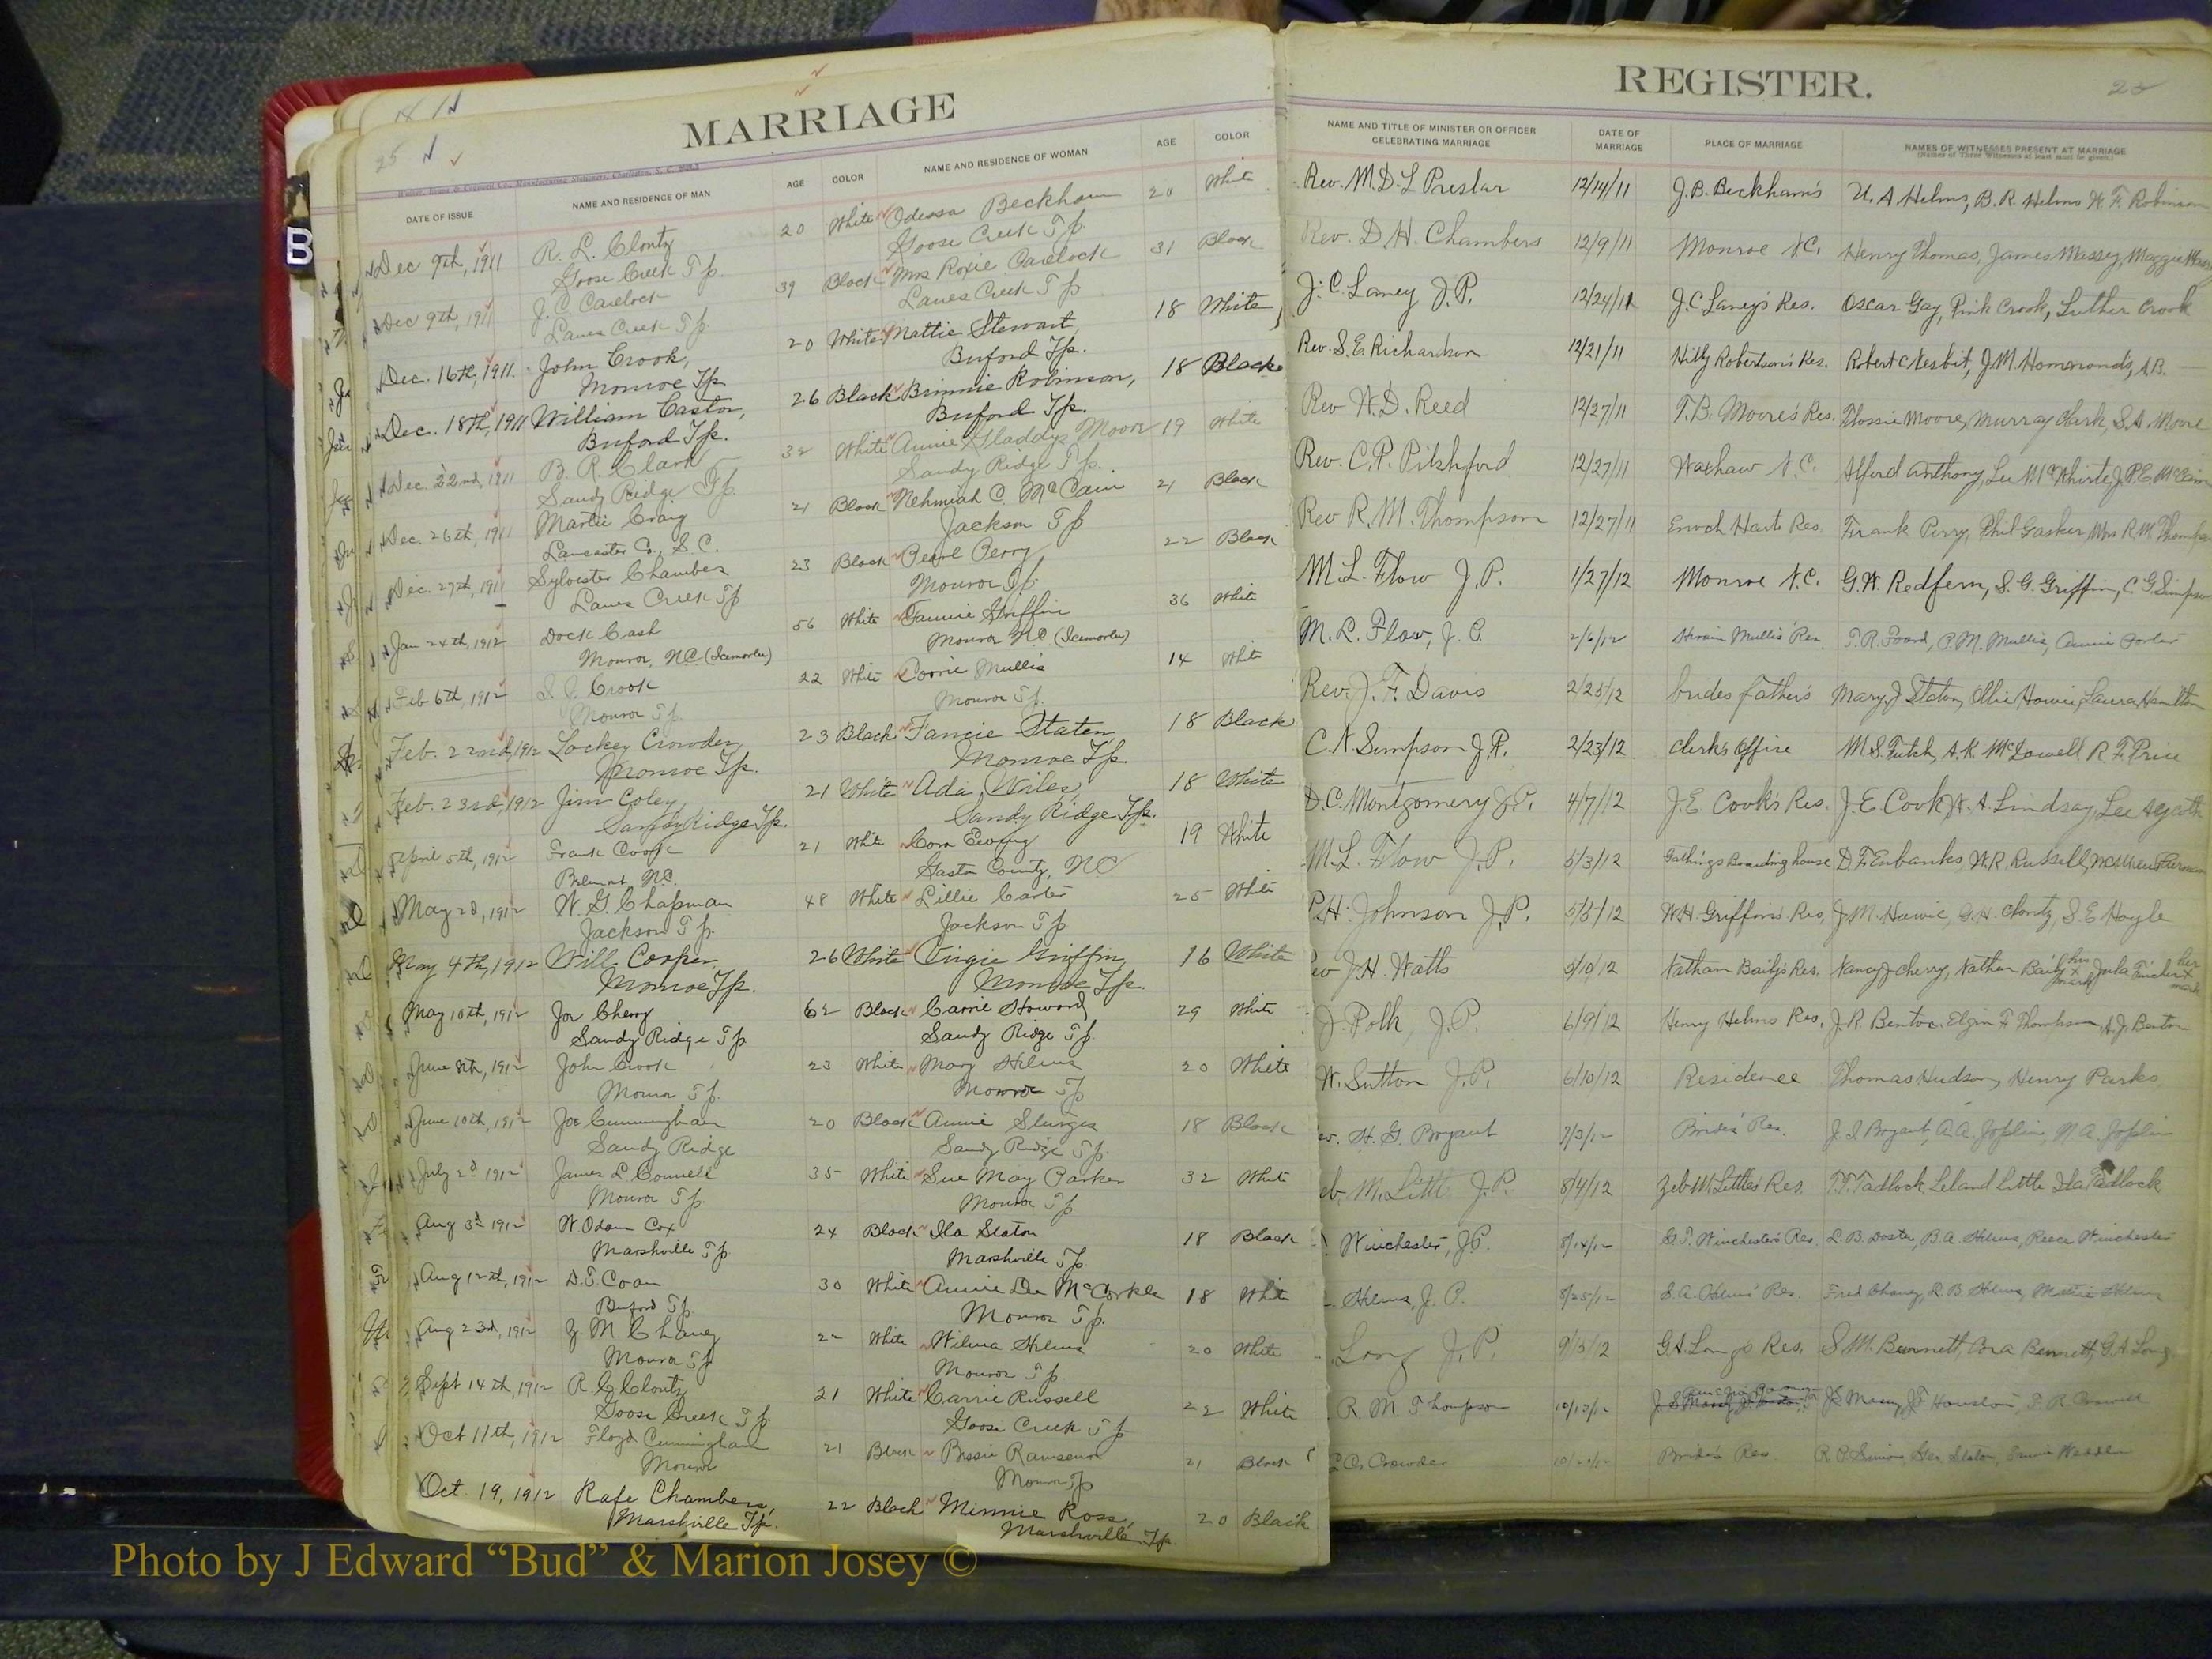 MARRIAGE
25
Walker, Evans & Cogswell Co., Manufacturing Stationers, Charleston, S. C.
DATE OF ISSUE NAME AND RESIDENCE OF MAN AGE COLOR NAME AND RESIDENCE OF WOMAN AGE COLOR
Dec 9th, 1911 R. L. Clontz 20 White Odessa Beckham 20 White
Goose Creek Tp. Goose Creek Tp
Dec 9th, 1911 J. C. Carelock 39 Black Mrs Roxie Carelock 31 Black
Lanes Creek Tp. Lanes Creek Tp
Dec. 16th, 1911. John Crook, 20 White Mattie Stewart, 18 White
Monroe Tp. Buford Tp.
Dec. 18th, 1911 William Caston, 26 Black Binnie Robinson, 18 Black
Buford Tp. Buford Tp.
Dec. 22nd, 1911 B. R. Clark 32 White Annie Gladdys Moore 19 White
Sandy Ridge Tp. Sandy Ridge Tp.
Dec. 26th, 1911 Martie Craig 21 Black Nehmiah C. McCain 21 Black
Lancaster Co., S. C. Jackson Tp
Dec. 27th, 1911 Sylvester Chambers 23 Black Pearl Perry 22 Black
Lanes Creek Tp Monroe Tp.
Jan 24th, 1912 Dock Cash 56 White Fannie Griffin 36 White
Monroe, NC (Icemorlee) Monroe NC (Icemorlee)
Feb 6th, 1912 Crook 22 White Corrie Mullis 14 White
Monroe Tp. Monroe Tp.
Feb. 22nd, 1912 Lockey Crowder, 23 Black Fancie Staten, 18 Black
Monroe Tp. Monroe Tp.
Feb. 23rd, 1912 Jim Coley, 21 White Ada Wiles, 18 White
Sandy Ridge Tp. Sandy Ridge Tp.
April 5th, 1912 Frank Cook 21 White Cora Ewing 19 White
Belmont, NC. Gaston County, NC
May 2d, 1912 W. G. Chapman 48 White Lillie Carter 25 White
Jackson Tp. Jackson Tp
May 4th, 1912 Will Cooper, 26 White Virgie Griffin, 16 White
Monroe Tp. Monroe Tp.
May 10th, 1912 Joe Cherry 62 Black Carrie Howard 29 White
Sandy Ridge Tp Sandy Ridge Tp.
June 8th, 1912 John Crook 23 White Mary Helms 20 White
Monroe Tp. Monroe Tp
June 10th, 1912 Joe Cunningham 20 Black Annie Sturgis 18 Black
Sandy Ridge Sandy Ridge Tp.
July 2d 1912 James L Connell 35 White Sue May Parker 32 White
Monroe Tp. Monroe Tp
Aug 3d 1912 W. Odam Cox 24 Black Ila Staton 18 Black
Marshville Tp. Marshville Tp
Aug 12th, 1912 D. T. Coan 30 White Annie Lee McCorkle 18 White
Buford Tp. Monroe Tp.
Aug 23rd, 1912 Z M Chaney 22 White Wilma Helms 20 White
Monroe Tp Monroe Tp.
Sept 14th, 1912 R C Clontz 21 White Carrie Russell 22 White
Goose Creek Tp. Goose Creek Tp
Oct 11th, 1912 Floyd Cunningham 21 Black Bessie Ramseur 21 Black
Monroe Monroe Tp
Oct. 19, 1912 Rafe Chambers, 22 Black Minnie Ross, 20 Black
Marshville Tp. Marshville Tp.
REGISTER.
25
NAME AND TITLE OF MINISTER OR OFFICER CELEBRATING MARRIAGE DATE OF MARRIAGE PLACE OF MARRIAGE NAMES OF WITNESSES PRESENT AT MARRIAGE
(Names of Three Witnesses at least must be given.)
Rev. M. D. L Preslar 12/14/11 J. B. Beckham's U. A Helms, B. R. Helms W. F. Robinson
Rev. D. H. Chambers 12/9/11 Monroe N.C. Henry Thomas, James Massey, Maggie
J. C. Laney J. P. 12/24/11 J. C Laney's Res. Oscar Gay, Pink Crook, Luther Crook
Rev. S. E. Richardson 12/21/11 Hilly Robertson's Res. Robert C Nesbit, J. M. Hommonds, A. B.
Rev W. D. Reed 12/27/11 T. B. Moore's Res. Flossie Moore, Murray Clark, S. A. Moore
Rev. C. P. Pitchford 12/27/11 Waxhaw N. C. Alford Anthony, Lee McWhirter, J. P. E McCain
Rev R. M. Thompson 12/27/11 Enoch Harts Res. Frank Perry, Phil Gasker, Mrs R. M. Thompson
M. L. Flow J. P. 1/27/12 Monroe N. C. G. W. Redfern, S. G. Griffin, C G. Simpson
M. L. Flow, J. P. 2/6/12 Hiram Mullis' Res. T. R. Foard, P. M. Mullis, Annie Porter
Rev. J. F. Davis 2/25/12 brides father's Mary J. Staton, Ollie Howie, Laura Hamilton
C. N. Simpson J. P. 2/23/12 clerk's office M. S. Futch, A. K. McDowell. R. F. Price
D. C. Montgomery J. P. 4/7/12 J. E Cook's Res. J. E. Cook, W. A. Lindsay, Lee Aycoth
M. L. Flow J. P. 5/3/12 Gathings Boarding house D. F. Eubanks, W. R. Russell,
P. H. Johnson J. P. 5/5/12 W. H. Griffin's Res. J. M. Howie, G. H. Clontz, S. E Hoyle
J. H. Watts 5/10/12 Nathan Baily's Res. Nancy J Cherry, Nathan Baily his X mark, Jula Tinder her X mark
J. Polk, J. P 6/9/12 Henry Helms Res. J. R. Benton, Elgin F Thompson, A. J. Benton
W. Sutton J. P. 6/10/12 Residence Thomas Hudson, Henry Parks
H. G. Bryant 7/3/12 Bride's Res. J. I Bryant, A. A. Joplin, N. A. Joplin
M. Little J. P. 8/4/12 Zeb M. Little's Res. T. F. Tadlock, Leland Little Ila Tadlock
Winchester, J. P. 8/14/12 G. T. Winchester's Res. L. B. Doster, B. A. Helms, Reece Winchester
Helms, J. P. 8/25/12 S. A. Helms' Res. Fred Chaney, R. B. Helms, Mattie Helms
Long J. P. 9/15/12 G. A. Long's Res. S. M. Bennett, Ora Bennett, G. A Long
R. M. Thompson 10/13/12 J. S Massey, J. T Houston,
Crowder Bride's Res R. P. Simons, Geo. Staton,
Photo by J Edward “Bud” & Marion Josey ©